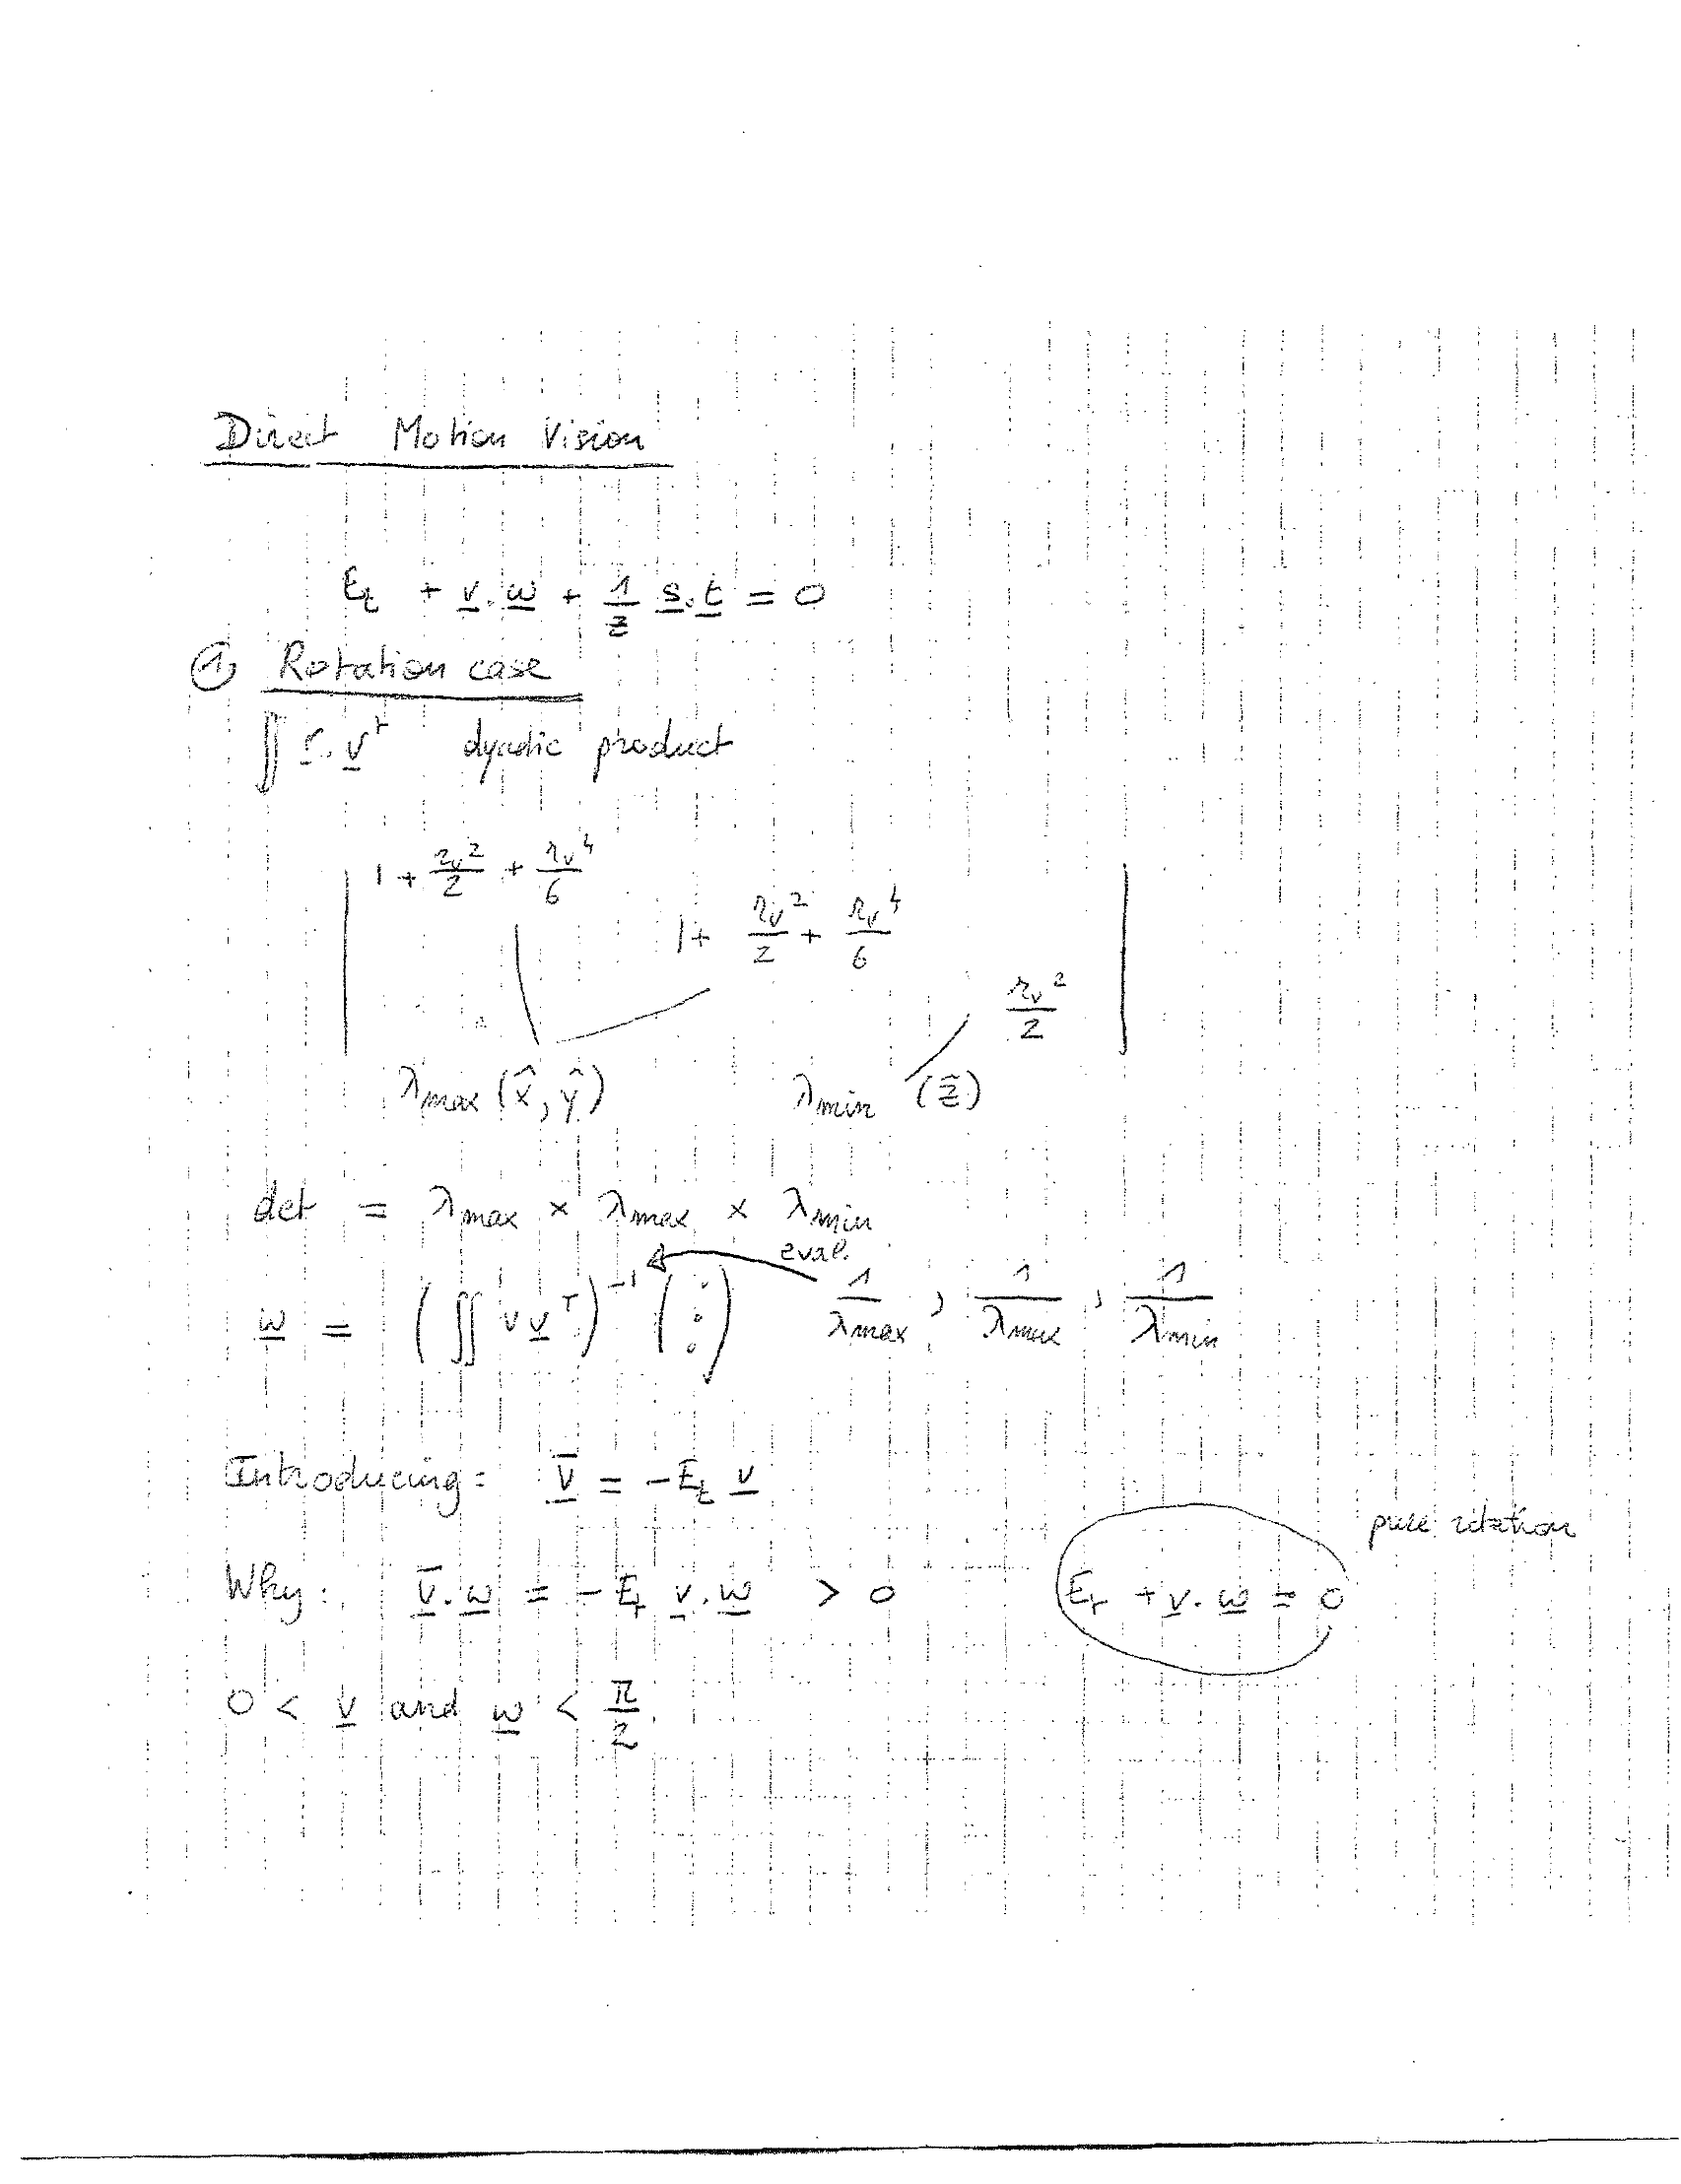 Direct Motion Vision
E_t + v̲ . ω̲ + 1/Z s̲ . t̲ = 0
① Rotation case
∬ r̲ . v̲^T dyadic product
1 + r_v²/2 + r_v⁴/6
1 + r_v²/2 + r_v⁴/6
r_v²/2
λmax (x̂, ŷ) λmin (ẑ)
det = λmax × λmax × λmin
eval.
ω̲ = (∬ v v̲^T)^-1 (⋮) 1/λmax , 1/λmax , 1/λmin
Introducing: v̲̄ = -E_t v̲
pure rotation
Why: v̲̄ . ω̲ = -E_t v̲ . ω̲ > 0 E_t + v̲ . ω̲ = 0
0 < v̲ and ω̲ < π/2